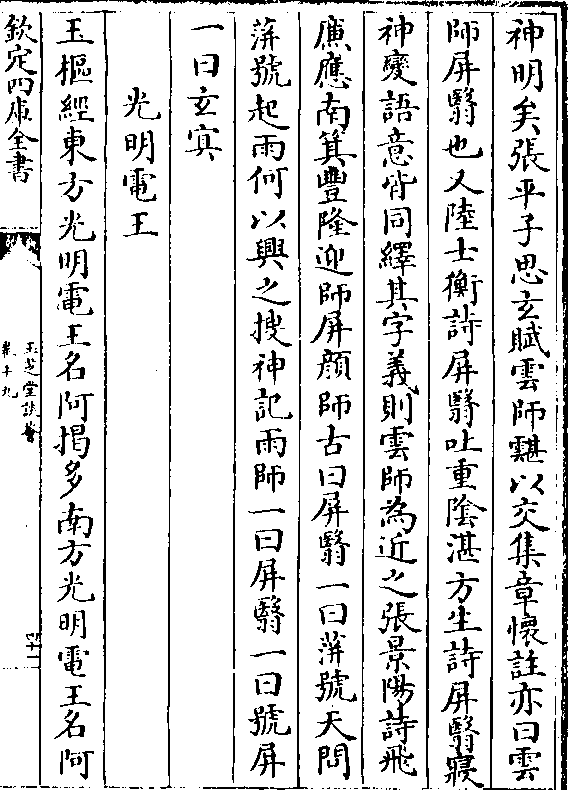 神明矣張平子思玄賦雲師䨴以交集章懷註亦曰雲
師屏翳也又陸士衡詩屏翳吐重陰湛方生詩屏翳寢
神變語意皆同繹其字義則雲師為近之張景陽詩飛
廉應南箕豐隆迎師屏顔師古曰屏翳一曰蓱號天問
蓱號起雨何以興之搜神記雨師一曰屏翳一曰號屏
一曰玄㝠
光明電王
玉樞經東方光明電王名阿掲多南方光明電王名阿
欽定四庫全書
玉芝堂談薈
卷十九
四十一